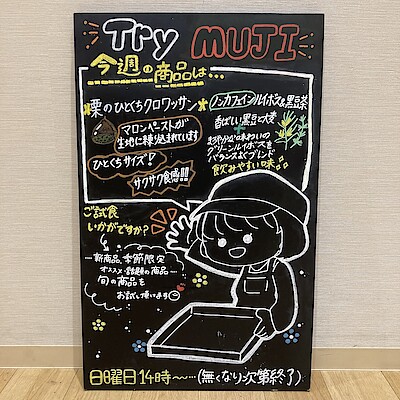 Try MUJI
今週の商品は…
栗のひとくちクロワッサン
マロンペーストが
生地に練り込まれています
ひとくちサイズ!
サクサク食感!!!
ノンカフェインルイボス&黒豆茶
香ばしい黒豆と大麦
+
まろやかな味わいの
グリーンルイボスを
バランスよくブレンド
飲みやすい味
ご試食
いかがですか?
新商品、季節限定
オススメ・話題の商品…
旬の商品を
お試し頂けます
日曜日14時~…(無くなり次第終了)